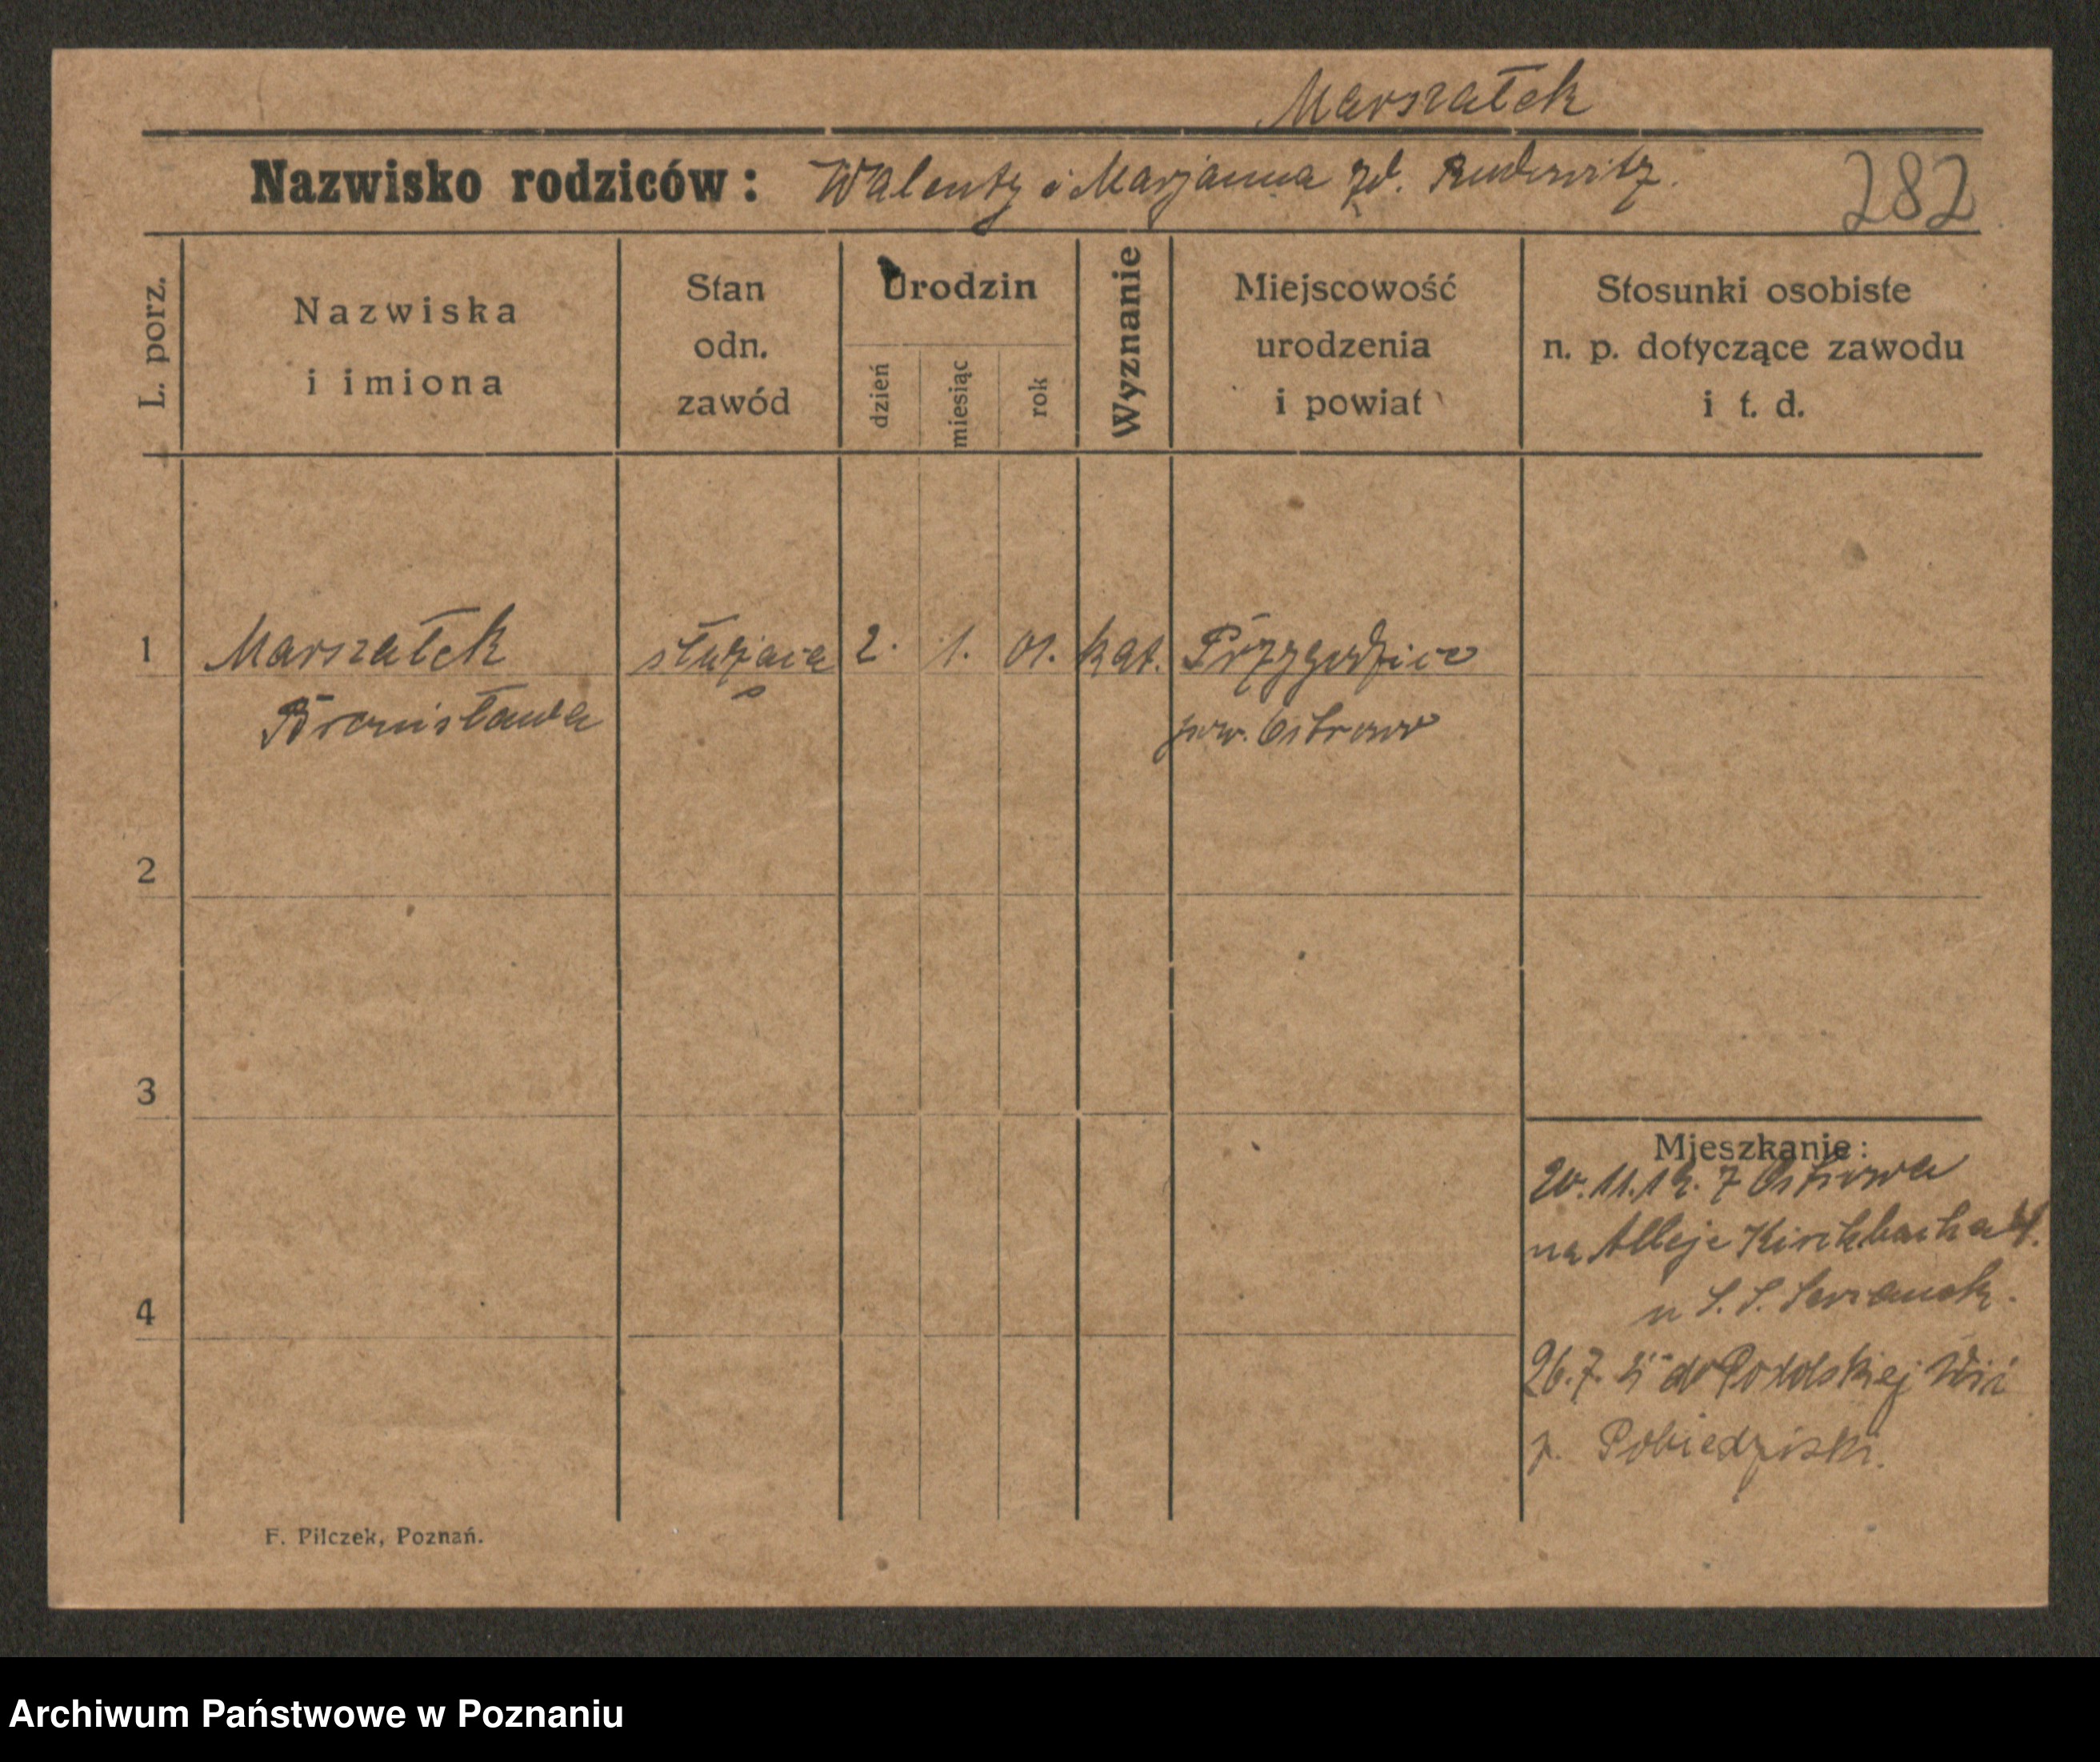 Marszałek
Nazwisko rodziców: Walenty i Marjanna zd. Rudowitz. 282
L. porz.
Nazwiska
i imiona
Stan
odn.
zawód
Urodzin
dzień
miesiąc
rok
Wyznanie
Miejscowość
urodzenia
i powiat
Stosunki osobiste
n. p. dotyczące zawodu
i t. d.
1 Marszałek służąca 2. 1. 01. kat. Przygodzice
Bronisława pow. Ostrowo
2
3
Mieszkanie:
20.11.19. z Ostrowa
na Alleje Kirchbacha
4
u
26.7. do Podolskiej Wsi
p. Pobiedziski.
F. Pilczek, Poznań.
Archiwum Państwowe w Poznaniu